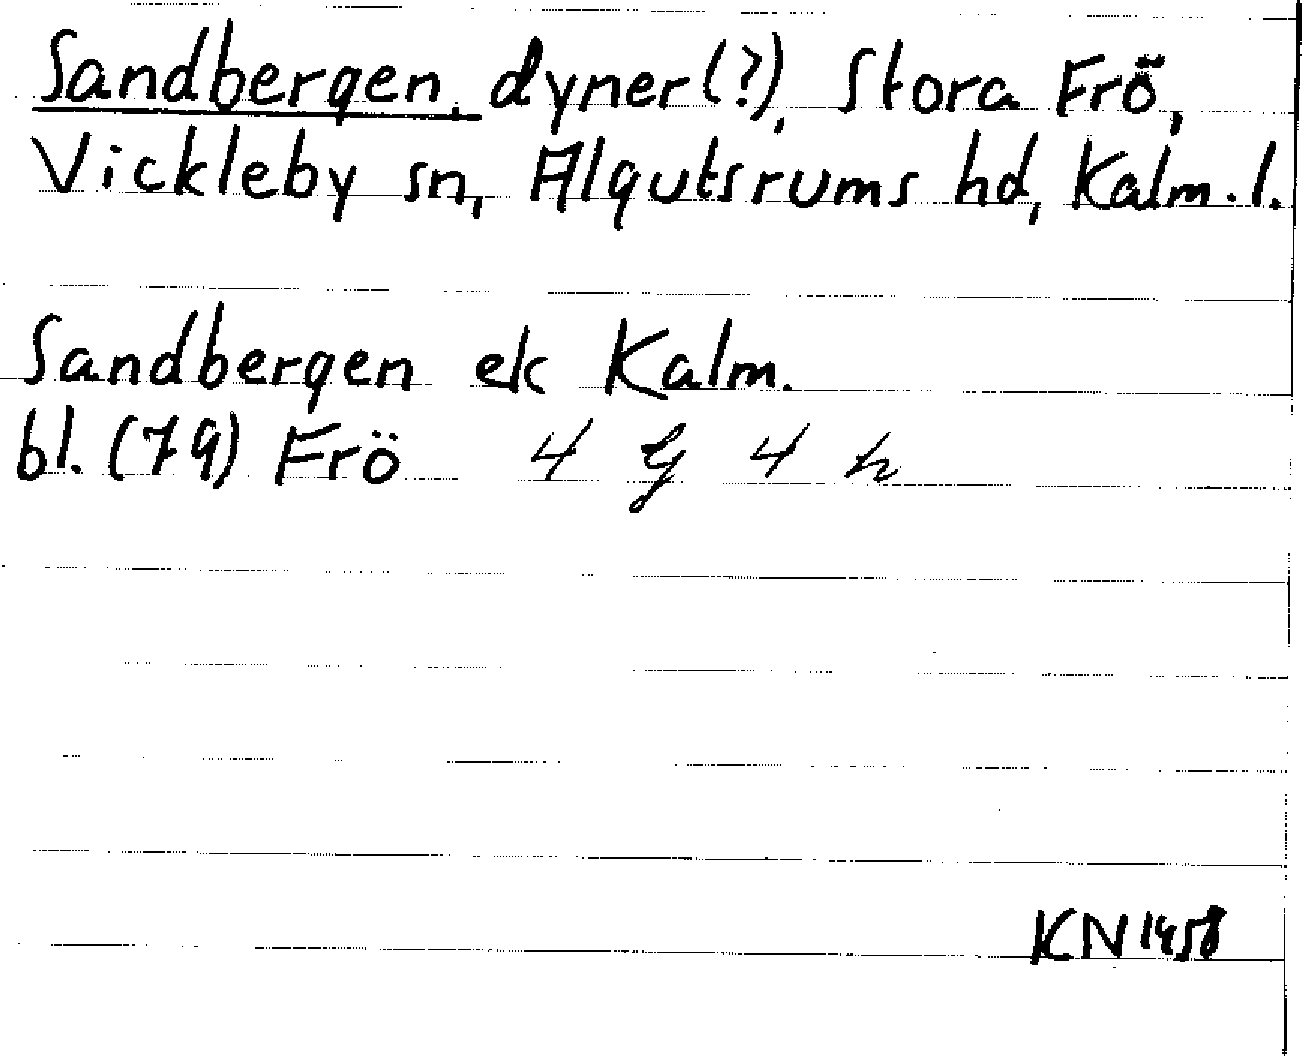 Sandbergen, dyner(?), Stora Frö,
Vickleby sn, Algutsrums hd, Kalm. l.
Sandbergen ek Kalm.
bl. (79) Frö 4 G 4 h
KN 1958